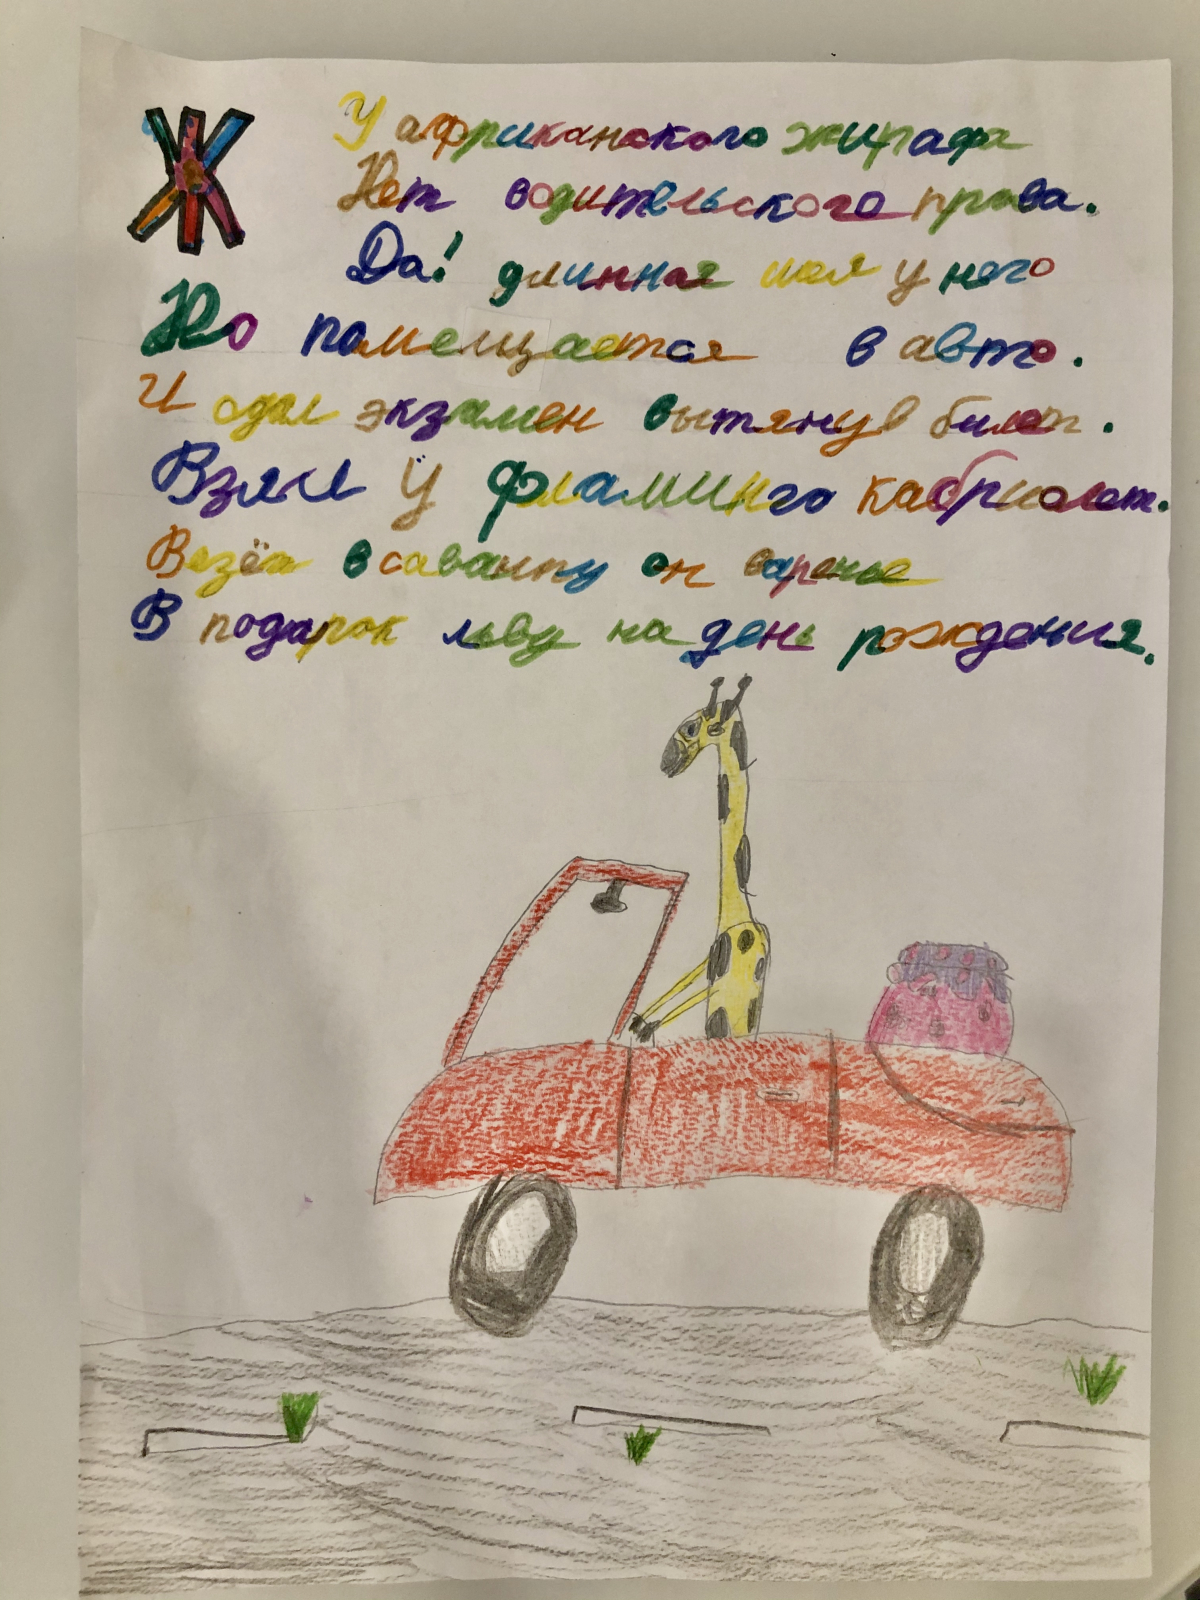 Ж
У африканского жирафа
Нет водительского права.
Да! длинная шея у него
Но помещается в авто.
И сдал экзамен вытянув билет.
Взял у фламинго кабриолет.
Везёт в саванну он варенье
В подарок льву на день рождения.